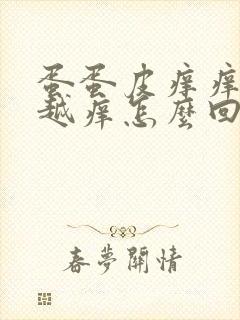 蛋蛋皮痒痒
越痒怎麼回
春夢關情